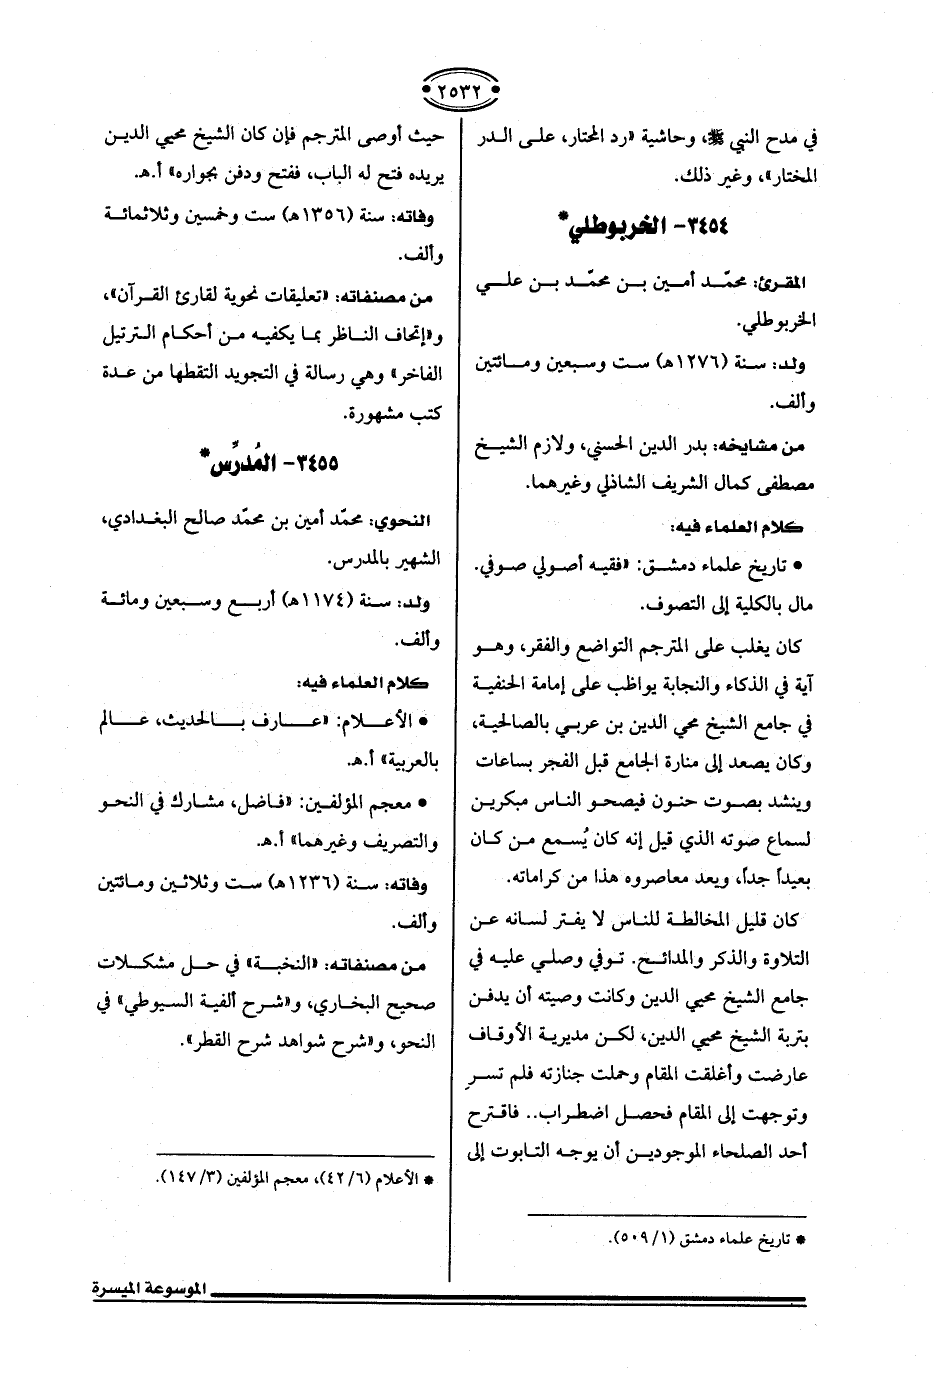 ٢٥٣٢
في مدح النبي ﷺ، وحاشية «رد المختار، على الدر
المختار»، وغير ذلك.
٣٤٥٤- الخربوطلي*
المقرئ: محمّد أمين بن محمّد بن علي
الخربوطلي.
ولد: سنة (١٢٧٦هـ) ست وسبعين ومائتين
وألف.
من مشايخه: بدر الدين الحسني، ولازم الشيخ
مصطفى كمال الشريف الشاذلي وغيرهما.
كلام العلماء فيه:
• تاريخ علماء دمشق: «فقيه أصولي صوفي.
مال بالكلية إلى التصوف.
كان يغلب على المترجم التواضع والفقر، وهو
آية في الذكاء والنجابة يواظب على إمامة الحنفية
في جامع الشيخ محي الدين بن عربي بالصالحية،
وكان يصعد إلى منارة الجامع قبل الفجر بساعات
وينشد بصوت حنون فيصحو الناس مبكرين
لسماع صوته الذي قيل إنه كان يُسمع من كان
بعيداً جداً، ويعد معاصروه هذا من كراماته.
كان قليل المخالطة للناس لا يفتر لسانه عن
التلاوة والذكر والمدائح. توفي وصلي عليه في
جامع الشيخ محيي الدين وكانت وصيته أن يدفن
بتربة الشيخ محيي الدين، لكن مديرية الأوقاف
عارضت وأغلقت المقام وحملت جنازته فلم تسر
وتوجهت إلى المقام فحصل اضطراب.. فاقترح
أحد الصلحاء الموجودين أن يوجه التابوت إلى
* تاريخ علماء دمشق (١/ ٥٠٩).
حيث أوصى المترجم فإن كان الشيخ محيي الدين
يريده فتح له الباب، ففتح ودفن بجواره» أ.هـ.
وفاته: سنة (١٣٥٦هـ) ست وخمسين وثلاثمائة
وألف.
من مصنفاته: «تعليقات نحوية لقارئ القرآن»،
و«إتحاف الناظر بما يكفيه من أحكام الترتيل
الفاخر» وهي رسالة في التجويد التقطها من عدة
كتب مشهورة.
٣٤٥٥- المُدرِّس*
النحوي: محمّد أمين بن محمّد صالح البغدادي،
الشهير بالمدرس.
ولد: سنة (١١٧٤هـ) أربع وسبعين ومائة
وألف.
كلام العلماء فيه:
• الأعلام: «عارف بالحديث، عالم
بالعربية» أ.هـ.
• معجم المؤلفين: «فاضل، مشارك في النحو
والتصريف وغيرهما» أ.هـ.
وفاته: سنة (١٢٣٦هـ) ست وثلاثين ومائتين
وألف.
من مصنفاته: «النخبة» في حل مشكلات
صحيح البخاري، و«شرح ألفية السيوطي» في
النحو، و«شرح شواهد شرح القطر».
* الأعلام (٦/ ٤٢)، معجم المؤلفين (٣/ ١٤٧).
الموسوعة الميسرة